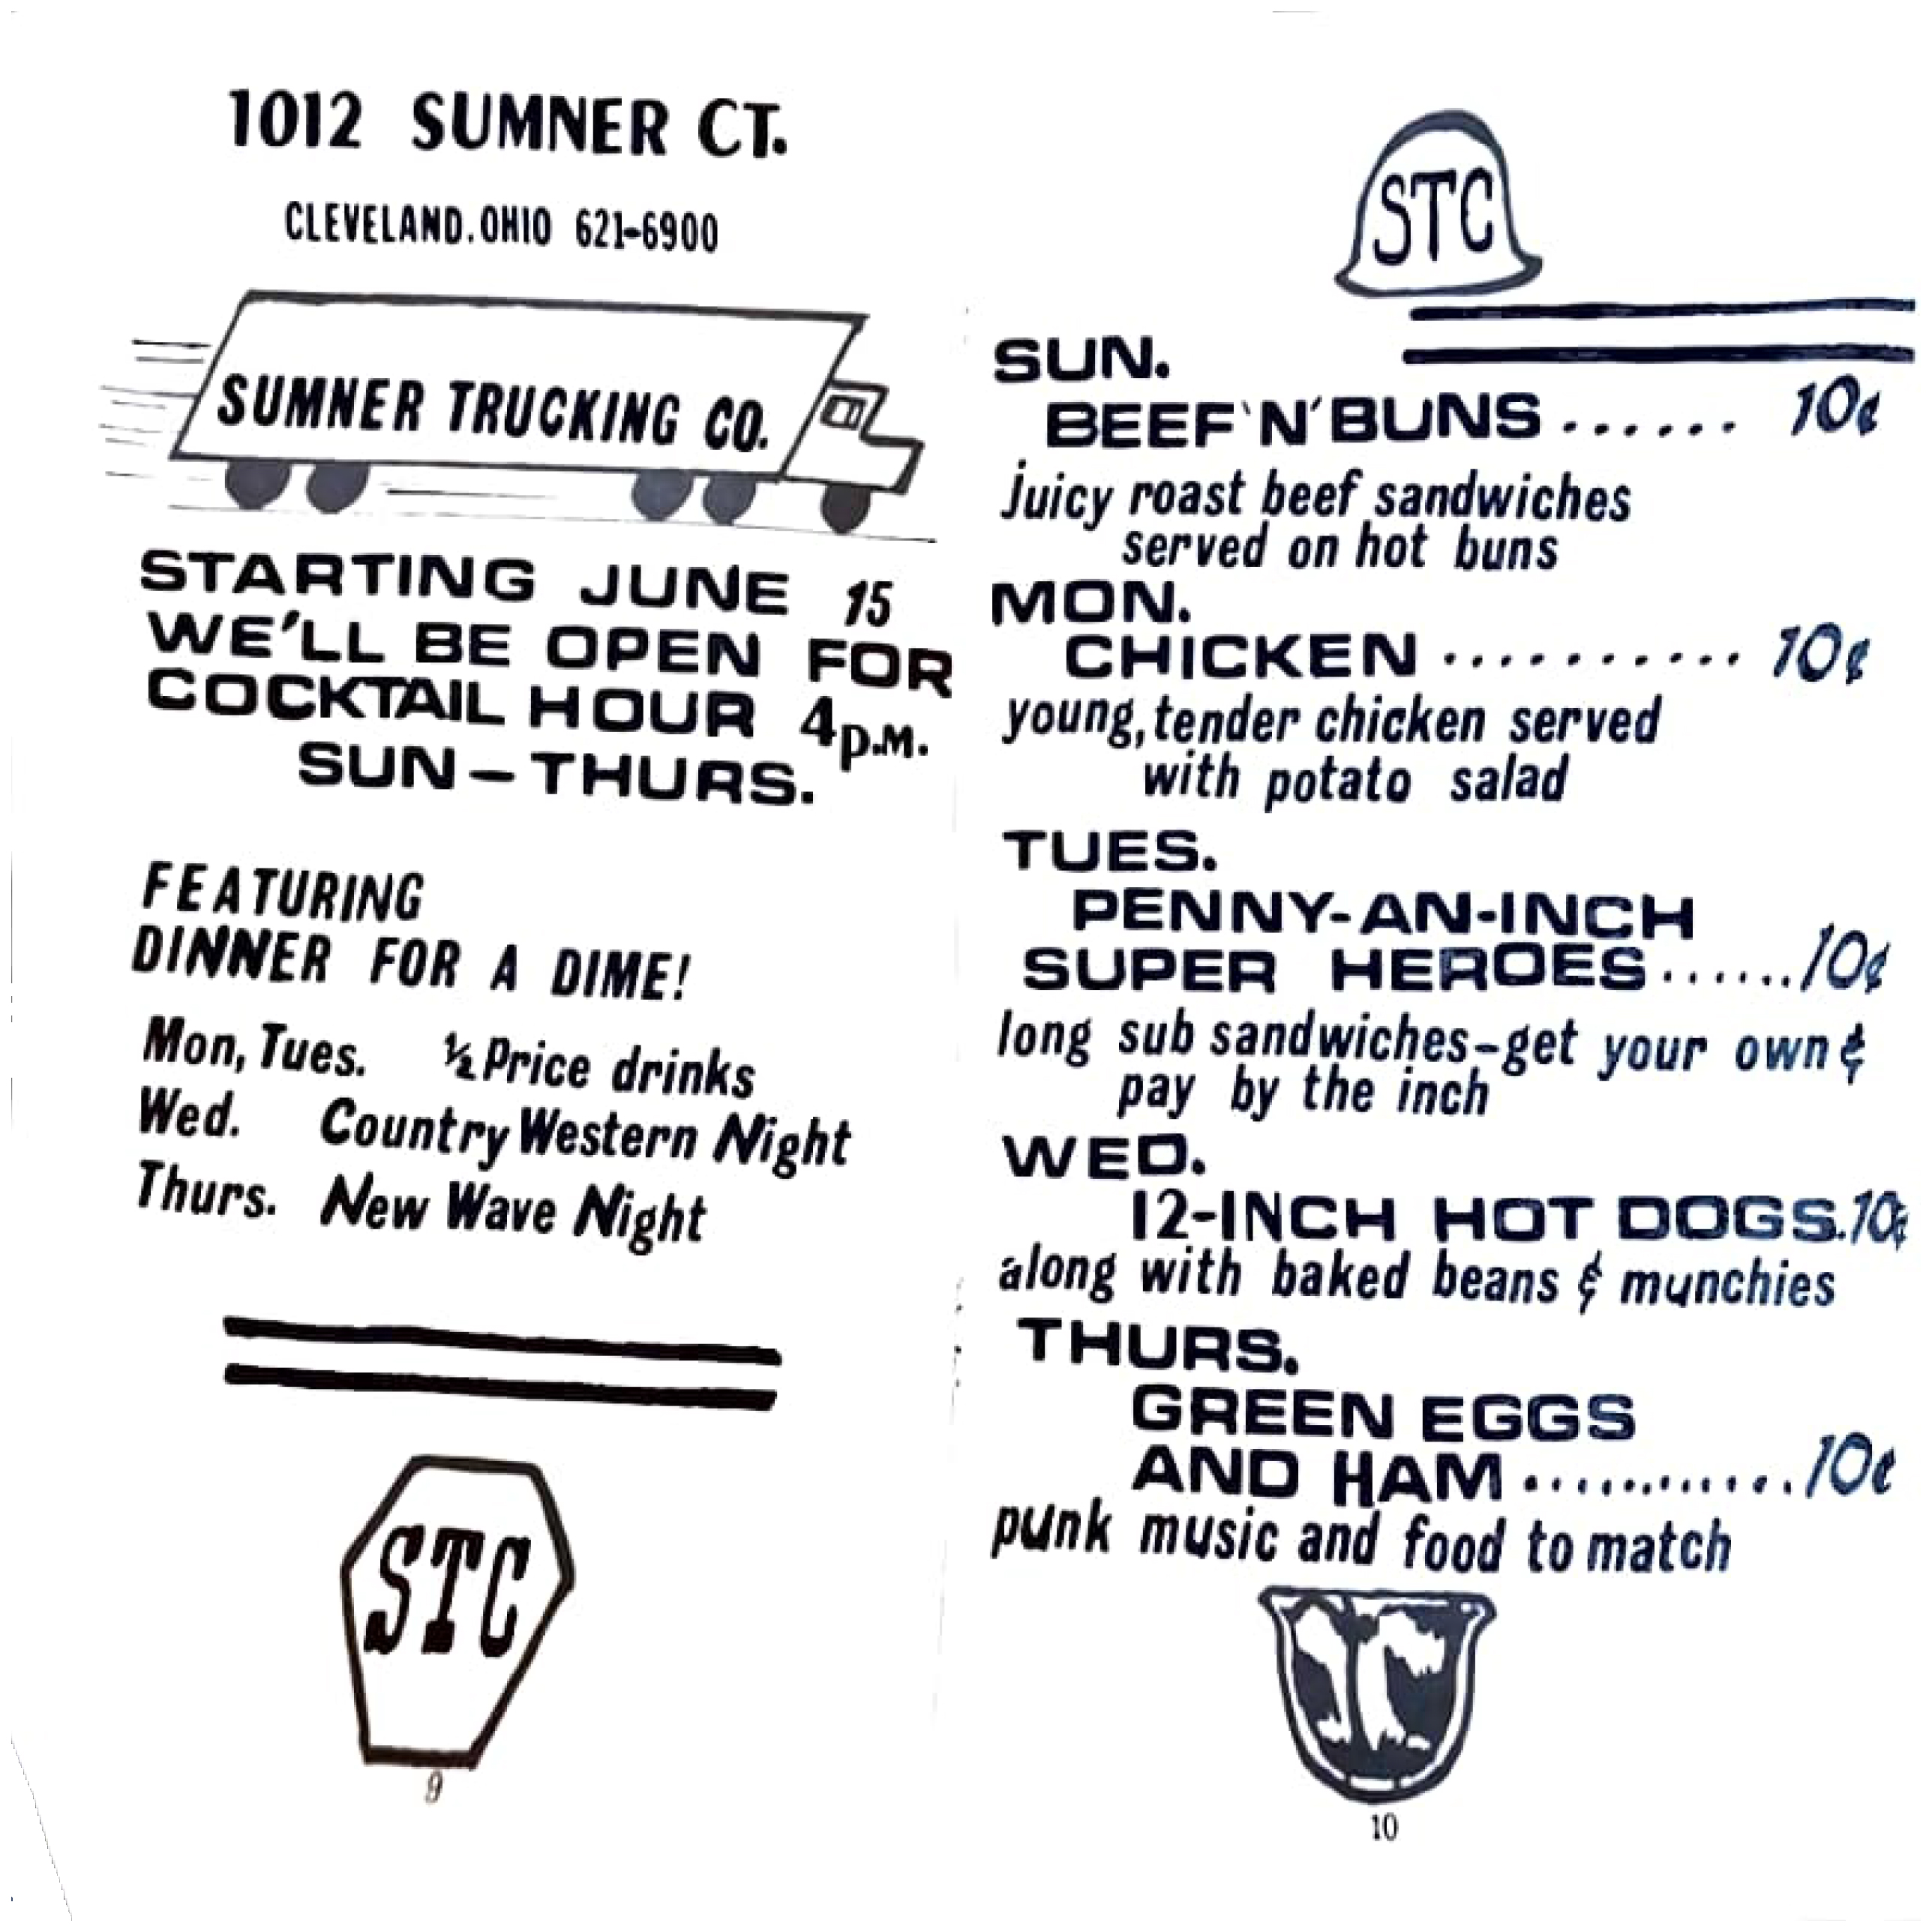 1012 SUMNER CT.
CLEVELAND. OHIO 621-6900
SUMNER TRUCKING CO.
STARTING JUNE 15
WE'LL BE OPEN FOR
COCKTAIL HOUR 4 P.M.
SUN - THURS.
FEATURING
DINNER FOR A DIME!
Mon, Tues. ½ Price drinks
Wed. Country Western Night
Thurs. New Wave Night
STC
9
STC
SUN.
BEEF 'N' BUNS ...... 10¢
juicy roast beef sandwiches
served on hot buns
MON.
CHICKEN .......... 10¢
young, tender chicken served
with potato salad
TUES.
PENNY-AN-INCH
SUPER HEROES ...... 10¢
long sub sandwiches - get your own &
pay by the inch
WED.
12-INCH HOT DOGS. 10¢
along with baked beans & munchies
THURS.
GREEN EGGS
AND HAM ............ 10¢
punk music and food to match
10